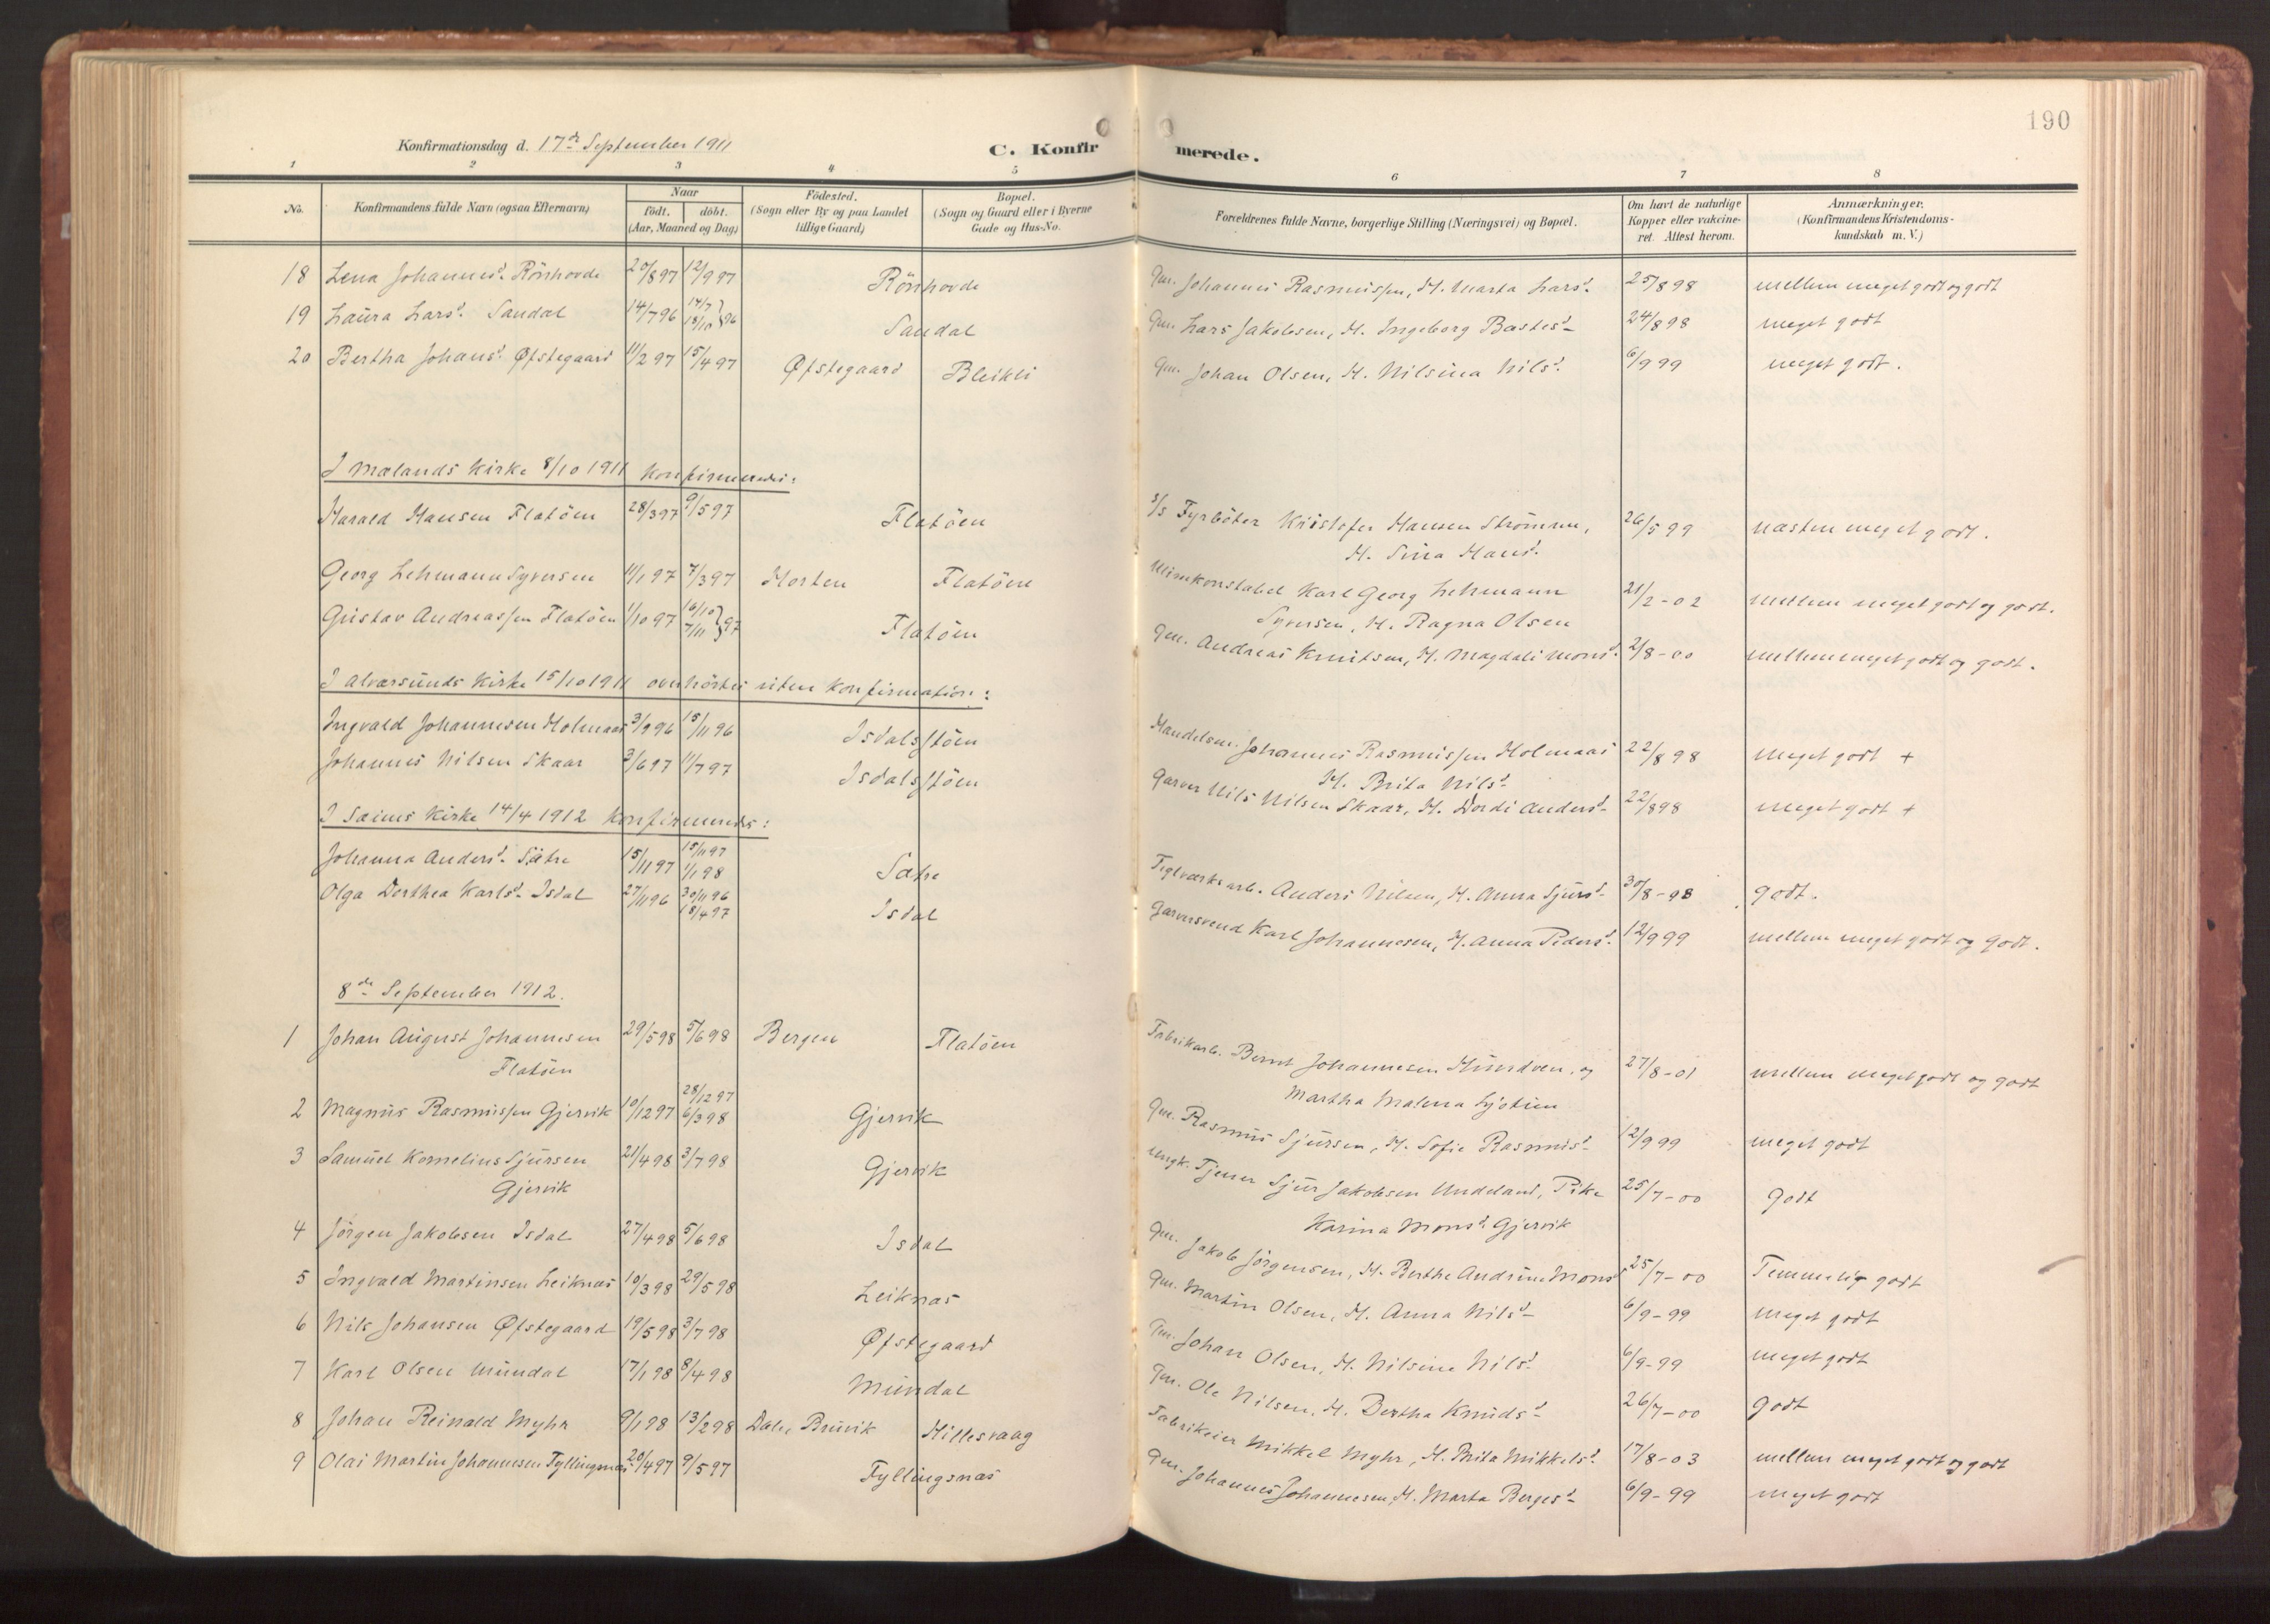 190
Konfirmationsdag d. 17de September 1911
C. Konfirmerede.
1 2 3 4 5 6 7 8
No.
Konfirmandens fulde Navn (ogsaa Efternavn)
Naar
födt. döbt.
(Aar, Maaned og Dag)
Födested.
(Sogn eller By og paa Landet
tillige Gaard)
Bopæl.
(Sogn og Gaard eller i Byerne
Gade og Hus-No.
Forældrenes fulde Navne, borgerlige Stilling (Næringsvei) og Bopæl.
Om havt de naturlige
Kopper eller vakcine-
ret. Attest herom.
Anmærkninger.
(Konfirmandens Kristendoms-
kundskab m. V.)
18 Lena Johannesd. Rönhovde 20/8 97 12/9 97 Rönhovde Gm. Johannes Rasmussen, H. Marta Larsd. 25/8 98 mellem meget godt og godt
19 Laura Larsd. Sandal 14/7 96 14/7 18/10 } 96 Sandal Gm. Lars Jakobsen, H. Ingeborg Bastesd. 24/8 98 meget godt
20 Bertha Johansd. Øfstegaard 11/2 97 15/4 97 Øfstegaard Bleikli Gm. Johan Olsen, H. Nilsina Nilsd. 6/9 99 meget godt.
I Mælands Kirke 8/10 1911 konfirmeredes:
Harald Hansen Flatöen 28/3 97 9/5 97 Flatöen s/s Fyrböter Kristofer Hansen Strömmen, 26/5 99 næsten meget godt.
H. Sina Hansd.
Georg Lehmann Syversen 11/1 97 7/3 97 Horten Flatöen Minekonstabel Karl Georg Lehmann 21/2-02 mellem meget godt og godt.
Syversen, H. Ragna Olsen
Gustav Andreassen Flatöen 1/10 97 16/10 7/11 } 97 Flatöen Gm. Andreas Knutsen, H. Magdali Monsd. 2/8-00 mellem meget godt og godt.
I Alversunds Kirke 15/10 1911 overhörtes uten konfirmation:
Ingvald Johannesen Holmaas 3/9 96 15/11 96 Isdalsstöen Handelsm. Johannes Rasmussen Holmaas 22/8 98 meget godt +
H. Brita Nilsd.
Johannes Nilsen Skaar 3/6 97 11/7 97 Isdalsstöen Garver Nils Nilsen Skaar, H. Dordi Andersd. 22/8 98 meget godt +
I Sæims Kirke 14/4 1912 konfirmeredes:
Johanna Andersd. Sætre 15/11 97 15/11 97 1/1 98 Sætre Teglværksarb. Anders Nilsen, H. Anna Sjursd. 30/8-98 godt.
Olga Dorthea Karlsd. Isdal 27/11 96 30/11 96 18/4 97 Isdal Garversvend Karl Johannesen, H. Anna Pedersd. 12/9 99 mellem meget godt og godt.
8de September 1912.
1 Johan August Johannesen 29/5 98 5/6 98 Bergen Flatöen Fabrikarb. Bernt Johannesen Mundven, og 27/8-01 mellem meget godt og godt
Flatöen Martha Malena
2 Magnus Rasmussen Gjervik 10/12 97 28/12 97 6/3 98 Gjervik Gm. Rasmus Sjursen, H. Sofie Rasmusd. 12/9 99 meget godt
3 Samuel Kornelius Sjursen 21/4 98 3/7 98 Gjervik Ungk. Tjener Sjur Jakobsen Undeland, Pike 25/7-00 Godt
Gjervik Karina Monsd. Gjervik
4 Jörgen Jakobsen Isdal 27/4 98 5/6 98 Isdal Gm. Jakob Jörgensen, H. Berthe Andrine Monsd. 25/7-00 Temmelig godt
5 Ingvald Martinsen Leiknæs 10/3 98 29/5 98 Leiknæs Gm. Martin Olsen, H. Anna Nilsd. 6/9-99 meget godt
6 Nils Johansen Øfstegaard 19/5 98 3/7 98 Øfstegaard Gm. Johan Olsen, H. Nilsine Nilsd. 6/9-99 meget godt
7 Karl Olsen Mundal 17/1 98 8/4 98 Mundal Gm. Ole Nilsen, H. Bertha Knudsd. 26/7-00 Godt
8 Johan Reinald Myhr 9/1 98 13/2 98 Dale, Bruvik Hillesvaag Fabrikeier Mikkel Myhr, H. Brita Mikkelsd. 17/8-03 mellem meget godt og godt
9 Olai Martin Johannesen Fyllingsnæs 20/4 97 9/5 97 Fyllingsnæs Gm. Johannes Johannesen, H. Marta Bergesd. 6/9-99 meget godt